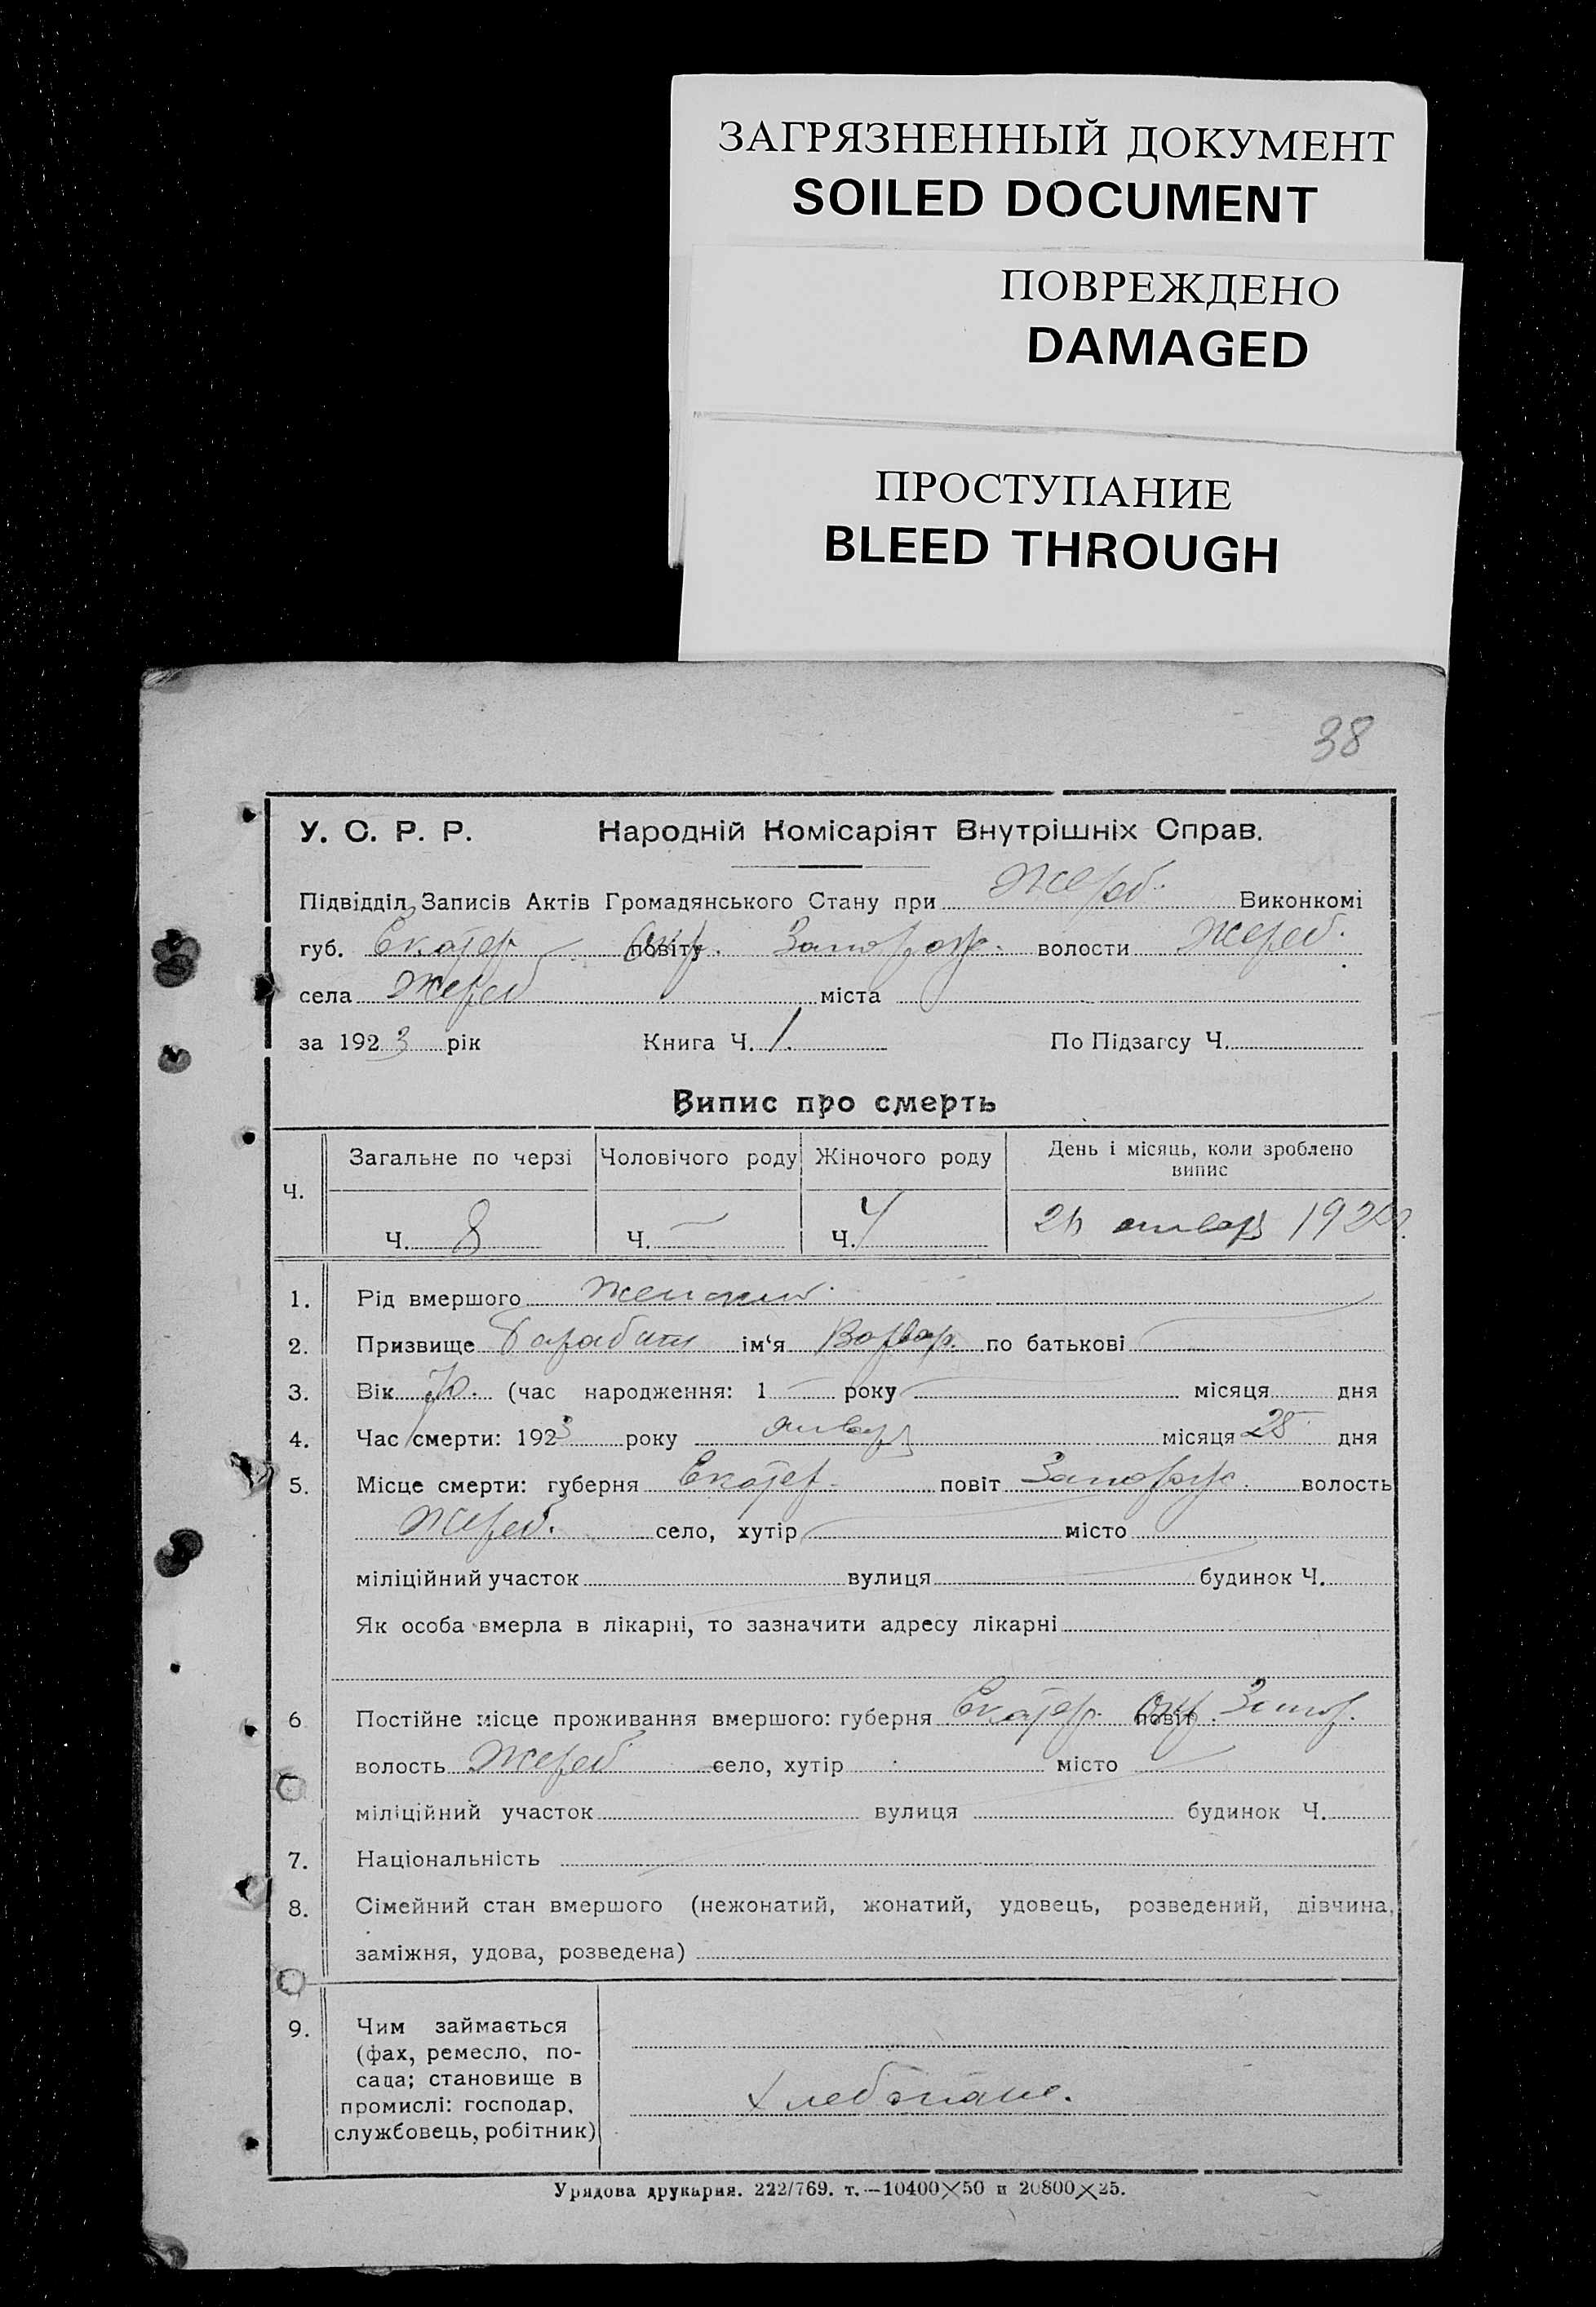 ЗАГРЯЗНЕННЫЙ ДОКУМЕНТ
SOILED DOCUMENT
ПОВРЕЖДЕНО
DAMAGED
ПРОСТУПАНИЕ
BLEED THROUGH
38
У. С. Р. Р. Народній Комісаріят Внутрішніх Справ.
Підвідділ Записів Актів Громадянського Стану при Жереб. Виконкомі
губ. Екатер повіту Окр. Запорож. волости Жереб.
села Жереб міста
за 1923 рік Книга Ч. 1. По Підзагсу Ч.
Випис про смерть
Ч. Загальне по черзі Чоловічого роду Жіночого роду День і місяць, коли зроблено випис
Ч. 8 Ч. — Ч. 4 январ 192
1. Рід вмершого Женский.
2. Призвище ім‘я Варвар. по батькові
3. Вік 70. (час народження: 1 року місяця дня
4. Час смерти: 1923 року январ місяця 25 дня
5. Місце смерти: губерня Екатер. повіт Запорож. волость
Жереб. село, хутір місто
міліційний участок вулиця будинок Ч.
Як особа вмерла в лікарні, то зазначити адресу лікарні
6 Постійне місце проживання вмершого: губерня Екатер. повіт Окр. Запор.
волость Жереб село, хутір місто
міліційний участок вулиця будинок Ч.
7. Національність
8. Сімейний стан вмершого (нежонатий, жонатий, удовець, розведений, дівчина,
заміжня, удова, розведена)
9. Чим займається
(фах, ремесло, по-
сада; становище в
промислі: господар,
службовець, робітник)
Хлебопаш.
Урядова друкарня. 222/769. т.—10400×50 и 20800×25.